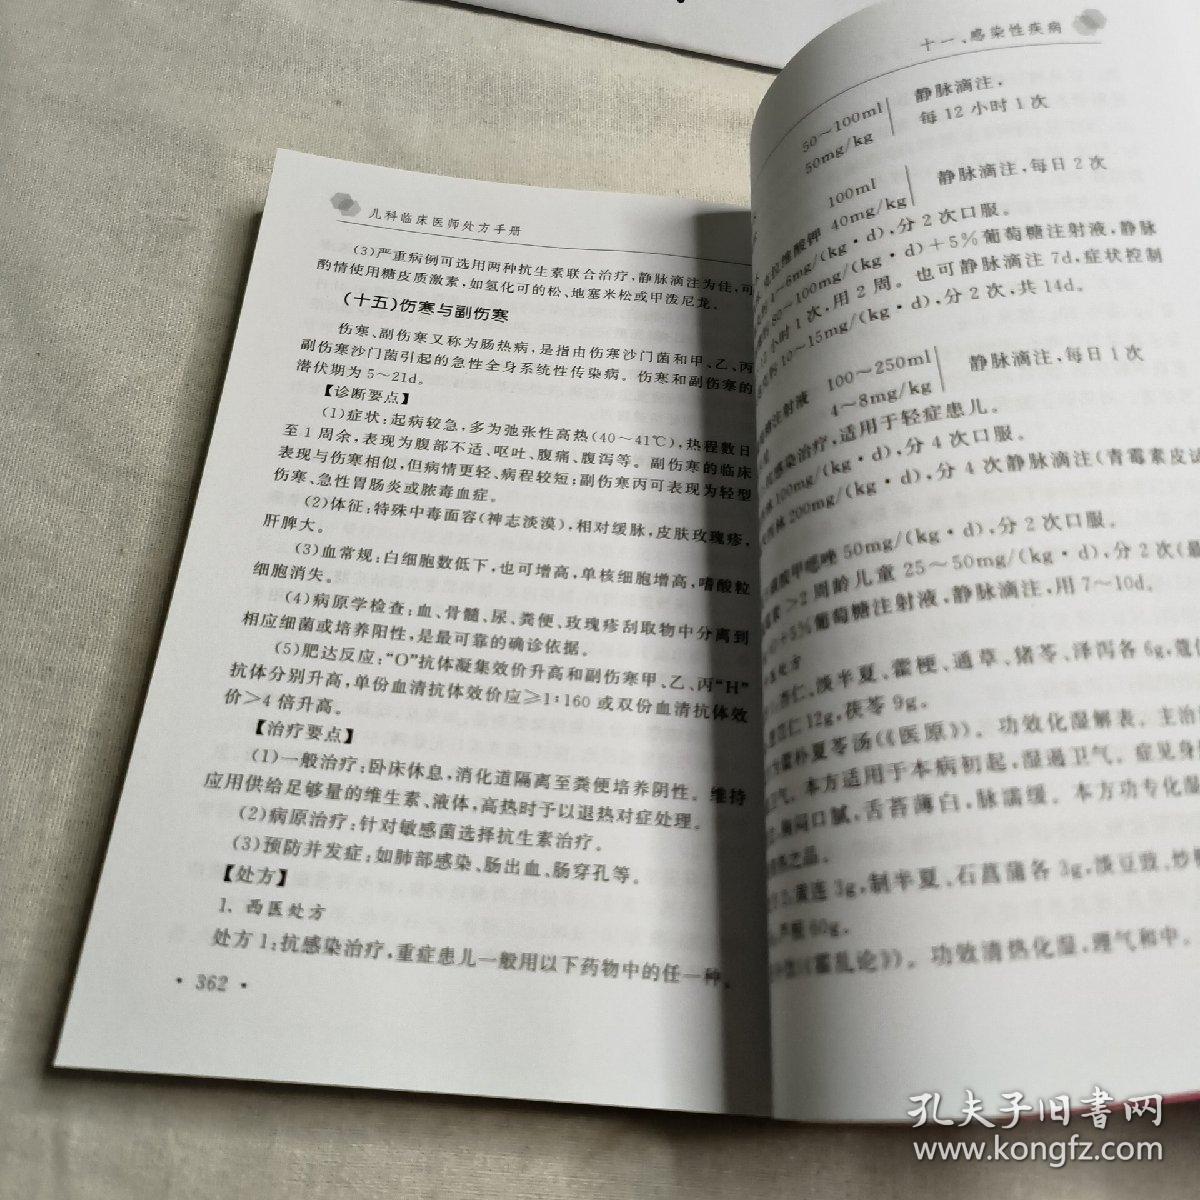 儿科临床医师处方手册
(3)严重病例可选用两种抗生素联合治疗,静脉滴注为佳,可
酌情使用糖皮质激素,如氢化可的松、地塞米松或甲泼尼龙。
(十五)伤寒与副伤寒
伤寒、副伤寒又称为肠热病,是指由伤寒沙门菌和甲、乙、丙
副伤寒沙门菌引起的急性全身系统性传染病。伤寒和副伤寒的
潜伏期为5~21d。
【诊断要点】
(1)症状:起病较急,多为弛张性高热(40~41℃),热程数日
至1周余,表现为腹部不适、呕吐、腹痛、腹泻等。副伤寒的临床
表现与伤寒相似,但病情更轻、病程较短;副伤寒丙可表现为轻型
伤寒、急性胃肠炎或脓毒血症。
(2)体征:特殊中毒面容(神志淡漠),相对缓脉,皮肤玫瑰疹,
肝脾大。
(3)血常规:白细胞数低下,也可增高,单核细胞增高,嗜酸粒
细胞消失。
(4)病原学检查:血、骨髓、尿、粪便、玫瑰疹刮取物中分离到
相应细菌或培养阳性,是最可靠的确诊依据。
(5)肥达反应:“O”抗体凝集效价升高和副伤寒甲、乙、丙“H”
抗体分别升高,单份血清抗体效价应≥1:160或双份血清抗体效
价>4倍升高。
【治疗要点】
(1)一般治疗:卧床休息,消化道隔离至粪便培养阴性。维持
应用供给足够量的维生素、液体,高热时予以退热对症处理。
(2)病原治疗:针对敏感菌选择抗生素治疗。
(3)预防并发症:如肺部感染、肠出血、肠穿孔等。
【处方】
1. 西医处方
处方1:抗感染治疗,重症患儿一般用以下药物中的任一种。
· 362 ·
十一、感染性疾病
50~100ml 静脉滴注,
50mg/kg 每12小时1次
100ml 静脉滴注,每日2次
40mg/kg
克拉维酸钾
4~6mg/(kg·d),分2次口服。
80~100mg/(kg·d)+5%葡萄糖注射液,静脉
小时1次,用2周。也可静脉滴注7d,症状控制
10~15mg/(kg·d),分2次,共14d。
注射液 100~250ml 静脉滴注,每日1次
4~8mg/kg
抗感染治疗,适用于轻症患儿。
100mg/(kg·d),分4次口服。
西林200mg/(kg·d),分4次静脉滴注(青霉素皮试
磺胺甲噁唑50mg/(kg·d),分2次口服。
>2周龄儿童25~50mg/(kg·d),分2次(最
+5%葡萄糖注射液,静脉滴注,用7~10d。
处方
杏仁、淡半夏、藿梗、通草、猪苓、泽泻各6g,蔻仁
苡仁12g,茯苓9g。
藿朴夏苓汤(《医原》)。功效化湿解表。主治
卫气。本方适用于本病初起,湿遏卫气。症见身
胸闷口腻,舌苔薄白,脉濡缓。本方功专化湿
之品。
黄连3g,制半夏、石菖蒲各3g,淡豆豉、炒
芦根60g。
《霍乱论》)。功效清热化湿,理气和中。
孔夫子旧书网
www.kongfz.com